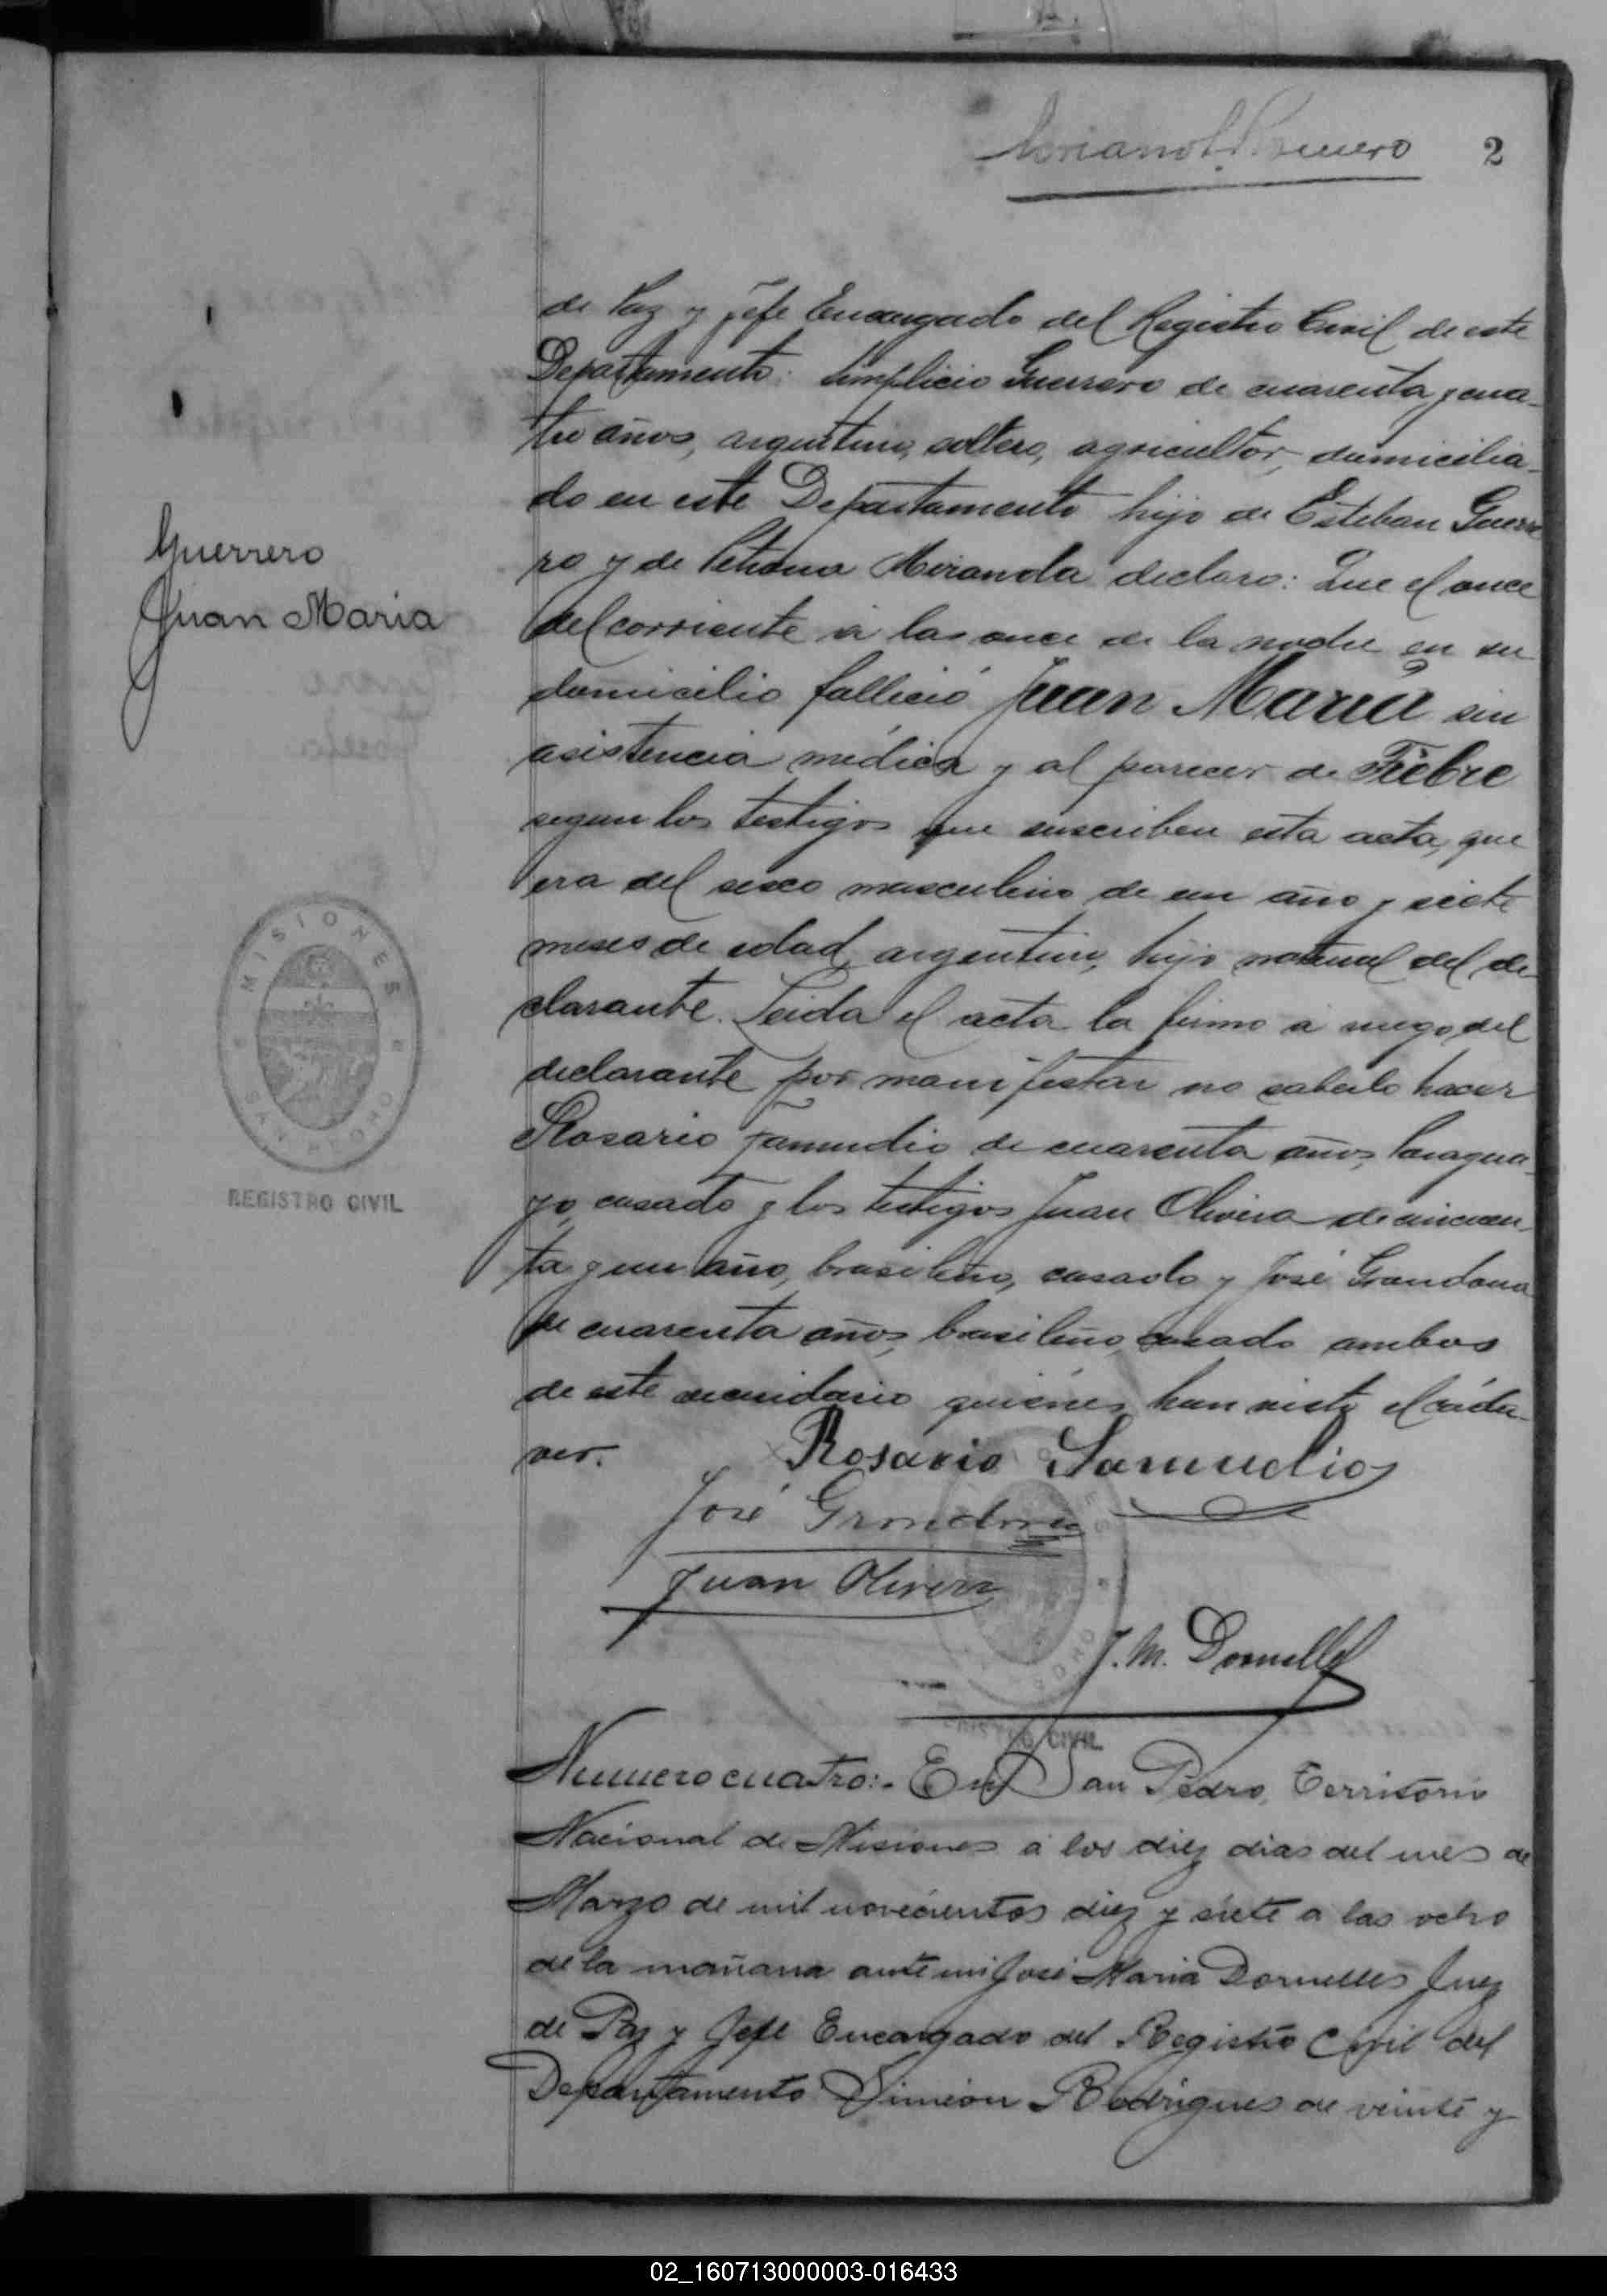 2
de Paz y Jefe Encargado del Registro Civil de este
Departamento: Simplicio Guerrero de cuarenta y cua-
tro años, argentino, soltero, agricultor, domicilia-
do en este Departamento hijo de Esteban Guerre
ro y de Petrona Miranda declaro: Que el once
del corriente á las once de la noche en su
domicilio falleció Juan Maria sin
asistencia médica y al parecer de Fiebre
segun los testigos que suscriben esta acta, que
era del sexo masculino de un año y siete
meses de edad, argentino, hijo natural del de-
clarante. Leida el acta la firmo á ruego del
declarante por manifestar no saberlo hacer
Rosario Samudio de cuarenta años, Paragua-
yo, casado y los testigos Juan Olivera de cincuen-
ta y un año, brasileño, casado y José Grandona
de cuarenta años, brasileño, casado ambos
de este vecindario quiénes han visto el cáda-
ver.
Rosario Samudio
José Grondona
Juan Olivera
J. M. Dornelles
Guerrero
Juan Maria
MISIONES
REGISTRO CIVIL
CIVIL
Numero cuatro:- En San Pedro, Territorio
Nacional de Misiones á los diez dias del mes de
Marzo de mil novecientos diez y siete a las ocho
de la mañana ante mi José Maria Dornelles Juez
de Paz y Jefe Encargado del Registro Civil del
Departamento Simeon Rodrigues de veinte y
02_160713000003-016433